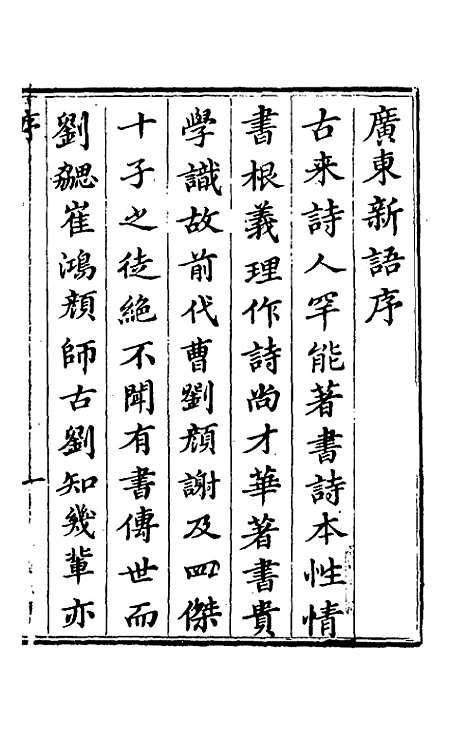 廣東新語序
古来詩人罕能著書詩本性情
書根義理作詩尚才華著書貴
學識故前代曹劉顔謝及四傑
十子之徒絶不聞有書傳世而
劉勰崔鴻顔師古劉知幾軰亦
序
一